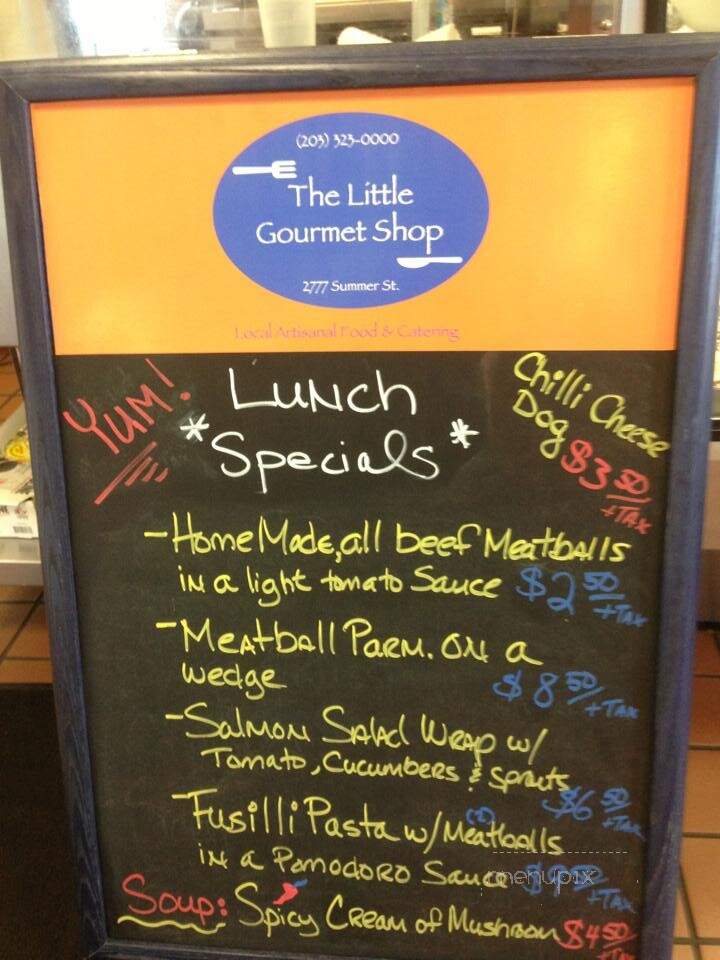 (203) 323-0000
The Little
Gourmet Shop
2777 Summer St.
Local Artisanal Food & Catering
YUM!
Lunch
*Specials*
Chilli Cheese
Dog $3.50
+TAX
-Home Made, all beef Meatballs
in a light tomato Sauce $2.50
+TAX
-Meatball Parm. on a
wedge $8.50
+TAX
-Salmon Salad Wrap w/
Tomato, Cucumbers & Sprouts
$6.50
+TAX
-Fusilli Pasta w/ (2) Meatballs
in a Pomodoro Sauce
+TAX
menupix
Soup: Spicy Cream of Mushroom $4.50
+TAX